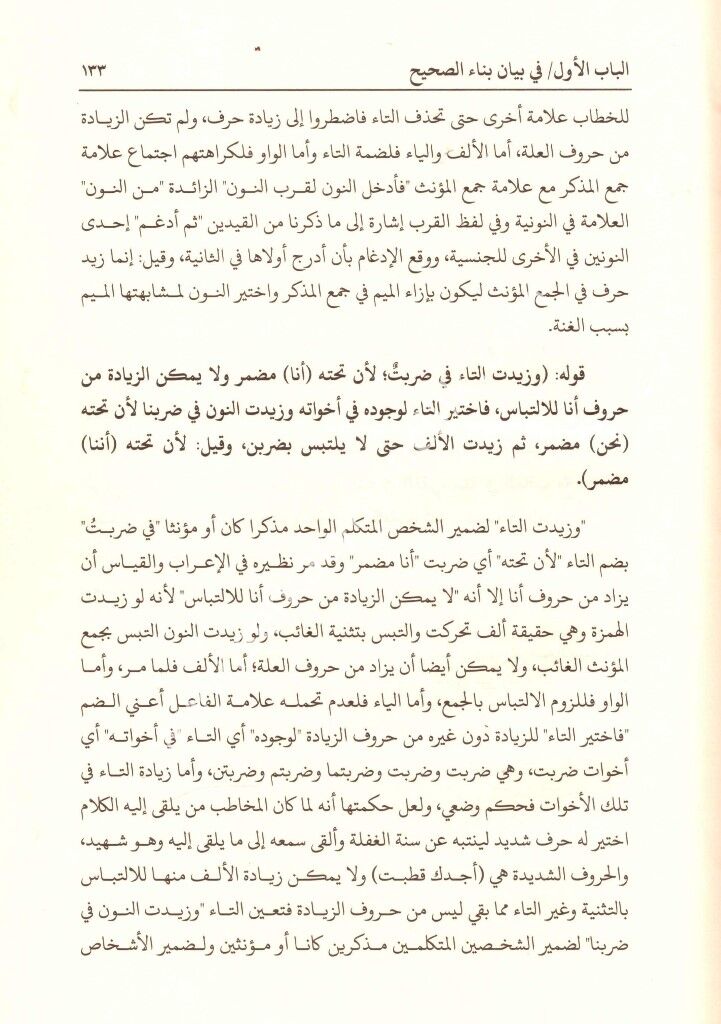 الباب الأول/ في بيان بناء الصحيح ١٣٣
للخطاب علامة أخرى حتى تحذف التاء فاضطروا إلى زيادة حرف، ولم تكن الزيادة
من حروف العلة، أما الألف والياء فلضمة التاء وأما الواو فلكراهتهم اجتماع علامة
جمع المذكر مع علامة جمع المؤنث "فأدخل النون لقرب النون" الزائدة "من النون"
العلامة في النونية وفي لفظ القرب إشارة إلى ما ذكرنا من القيدين "ثم أدغم" إحدى
النونين في الأخرى للجنسية، ووقع الإدغام بأن أدرج أولاها في الثانية، وقيل: إنما زيد
حرف في الجمع المؤنث ليكون بإزاء الميم في جمع المذكر واختير النون لمشابهتها الميم
بسبب الغنة.
قوله: (وزيدت التاء في ضربتٌ؛ لأن تحته (أنا) مضمر ولا يمكن الزيادة من
حروف أنا للالتباس، فاختير التاء لوجوده في أخواته وزيدت النون في ضربنا لأن تحته
(نحن) مضمر، ثم زيدت الألف حتى لا يلتبس بضربن، وقيل: لأن تحته (أننا)
مضمر).
"وزيدت التاء" لضمير الشخص المتكلم الواحد مذكرا كان أو مؤنثا "في ضربتُ"
بضم التاء "لأن تحته" أي ضربت "أنا مضمر" وقد مر نظيره في الإعراب والقياس أن
يزاد من حروف أنا إلا أنه "لا يمكن الزيادة من حروف أنا للالتباس" لأنه لو زيدت
الهمزة وهي حقيقة ألف تحركت والتبس بتثنية الغائب، ولو زيدت النون التبس بجمع
المؤنث الغائب، ولا يمكن أيضا أن يزاد من حروف العلة؛ أما الألف فلما مر، وأما
الواو فللزوم الالتباس بالجمع، وأما الياء فلعدم تحمله علامة الفاعل أعني الضم
"فاختير التاء" للزيادة دون غيره من حروف الزيادة "لوجوده" أي التاء "في أخواته" أي
أخوات ضربت، وهي ضربت وضربت وضربتما وضربتم وضربتن، وأما زيادة التاء في
تلك الأخوات فحكم وضعي، ولعل حكمتها أنه لما كان المخاطب من يلقى إليه الكلام
اختير له حرف شديد لينتبه عن سنة الغفلة وألقى سمعه إلى ما يلقى إليه وهو شهيد،
والحروف الشديدة هي (أجدك قطبت) ولا يمكن زيادة الألف منها للالتباس
بالتثنية وغير التاء مما بقي ليس من حروف الزيادة فتعين التاء "وزيدت النون في
ضربنا" لضمير الشخصين المتكلمين مذكرين كانا أو مؤنثين ولضمير الأشخاص